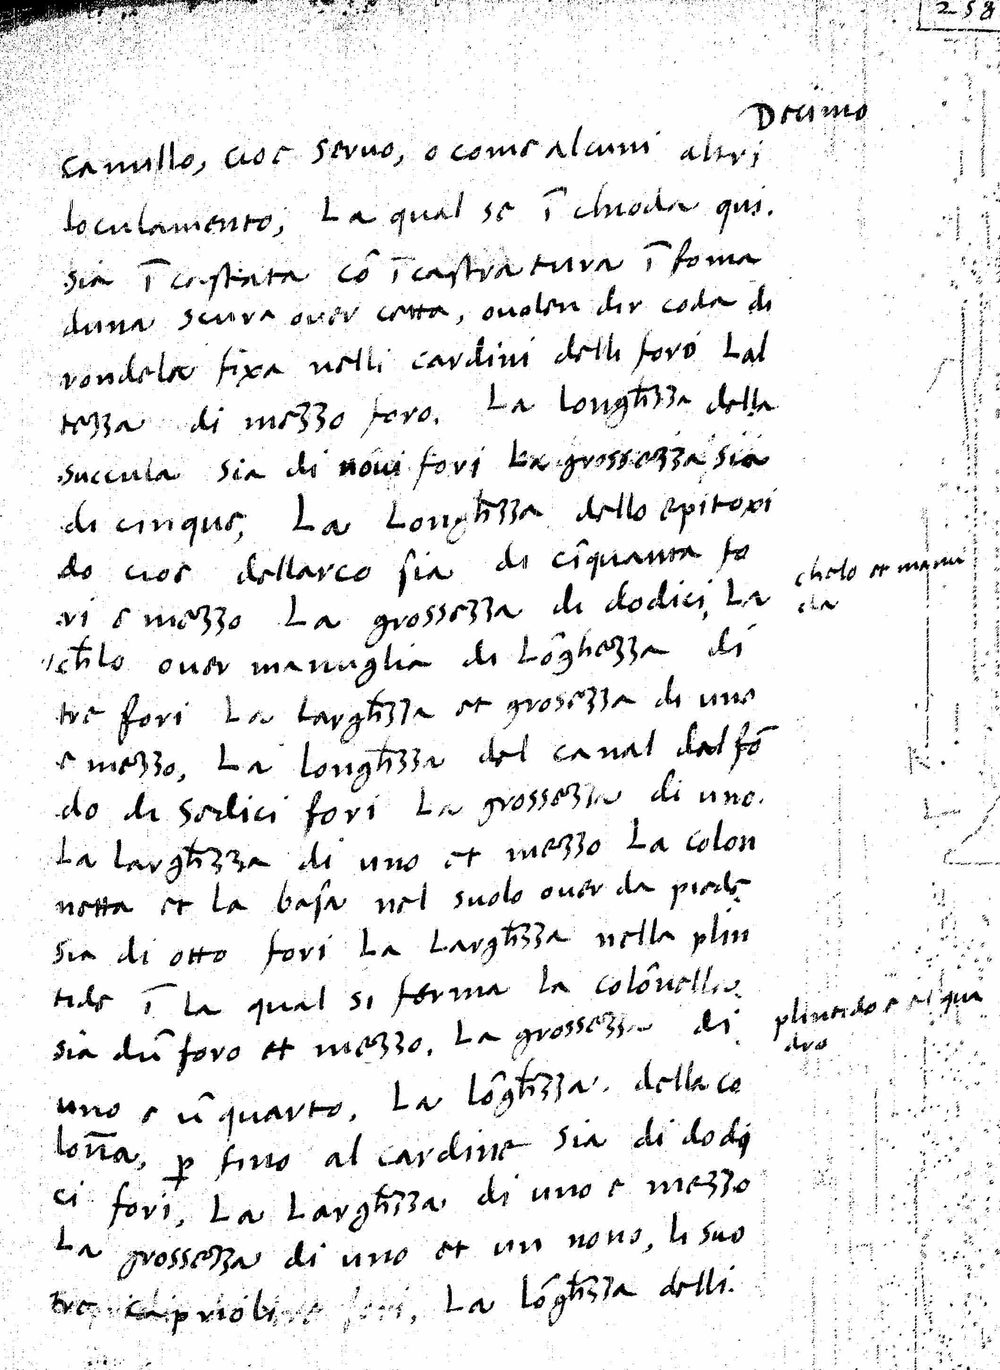 258
Decimo
camillo, cioe servo, o come alcuni altri
loculamento, La qual se ī chioda qui.
sia ī castrata cō ī castratura ī foma
duna scura over cetta, o volen dir coda di
rondela fixa nelli cardini delli fori Lal
tezza di mezzo foro. La longh̄zza della
succula sia di novi fori La grossezza sia
di cinque, La Longh̄zza dello epitoxi
do cioe dellarco sia di cīquanta fo
ri e mezzo La grossezza di dodici, La
chelo et manu
cla
ch̄lo over manuglia di Lōghezza di
tre fori La largh̄zza et grosezza di uno
e mezzo, La longh̄zza del canal dal fō
do di sedici fori La grossezza di uno.
La largh̄zza di uno et mezzo La colon
netta et la basa nel suolo over da piede
sia di otto fori La Largh̄zza nella plin
tide ī la qual si ferma la colōnella
sia dū foro et mezzo. La grossezza di
plineido e el qua
dro
uno e ū quarto. La lōgh̄zza della co
lōn̄a, p fino al cardine sia di dodi
ci fori, La Largh̄zza di uno e mezzo
La grossezza di uno et un nono, li suo
tre caprioli fori, La lōgh̄zza delli.